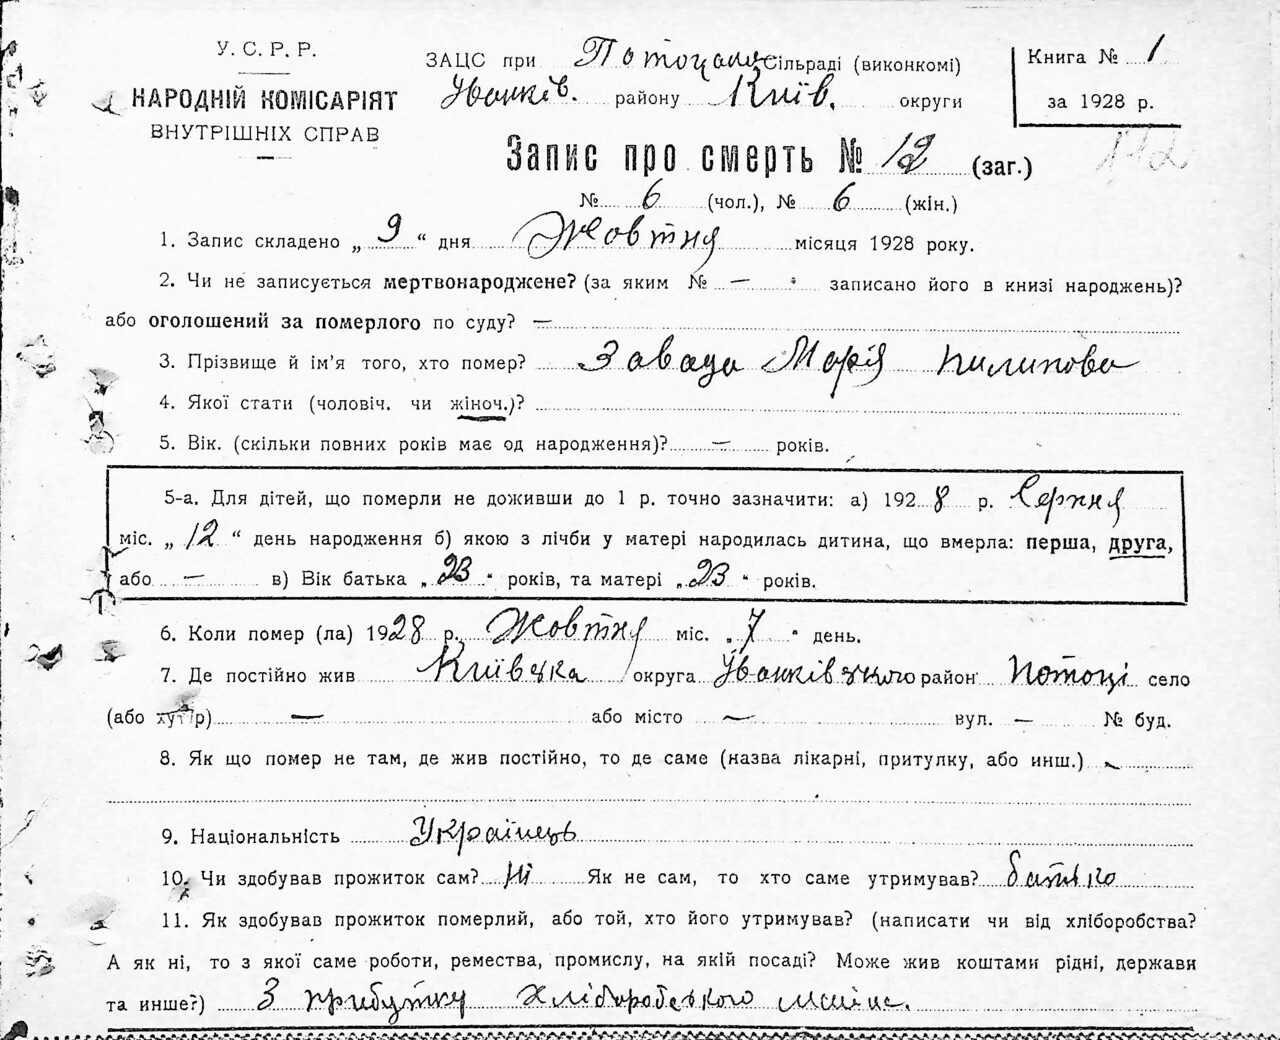 У. С. Р. Р.
НАРОДНІЙ КОМІСАРІЯТ
ВНУТРІШНІХ СПРАВ
ЗАЦС при Сільраді (виконкомі)
Іванків. району Київ. округи
Книга № 1
за 1928 р.
112
Запис про смерть № 12 (заг.)
№ 6 (чол.), № 6 (жін.)
1. Запис складено „ 9 “ дня Жовтня місяця 1928 року.
2. Чи не записується мертвонароджене? (за яким № — записано його в книзі народжень)?
або оголошений за померлого по суду? —
3. Прізвище й ім'я того, хто помер? Завада Марія Пилипова
4. Якої стати (чоловіч. чи жіноч.)?
5. Вік. (скільки повних років має од народження)? — років.
5-а. Для дітей, що померли не доживши до 1 р. точно зазначити: а) 1928 р. Серпня
міс. „ 12 “ день народження б) якою з лічби у матері народилась дитина, що вмерла: перша, друга,
або — в) Вік батька „ 23 “ років, та матері „ 23 “ років.
6. Коли помер (ла) 1928 р. Жовтня міс. „ 7 “ день.
7. Де постійно жив Київська округа Іванківського район Потоці село
(або хутір) — або місто — вул. — № буд.
8. Як що помер не там, де жив постійно, то де саме (назва лікарні, притулку, або инш.) —
9. Національність Українець
10. Чи здобував прожиток сам? Ні Як не сам, то хто саме утримував? батько
11. Як здобував прожиток померлий, або той, хто його утримував? (написати чи від хліборобства?
А як ні, то з якої саме роботи, ремества, промислу, на якій посаді? Може жив коштами рідні, держави
та инше?) З прибутку хліборобського